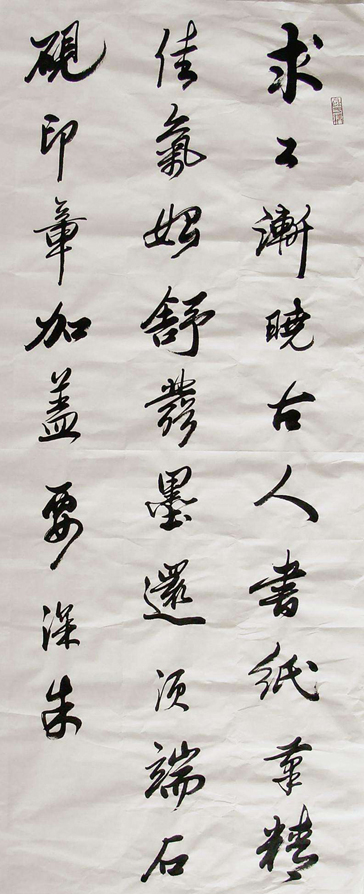 求工漸曉古人書紙筆精
佳氣始舒發墨還須端石
硯印章加盖要深朱